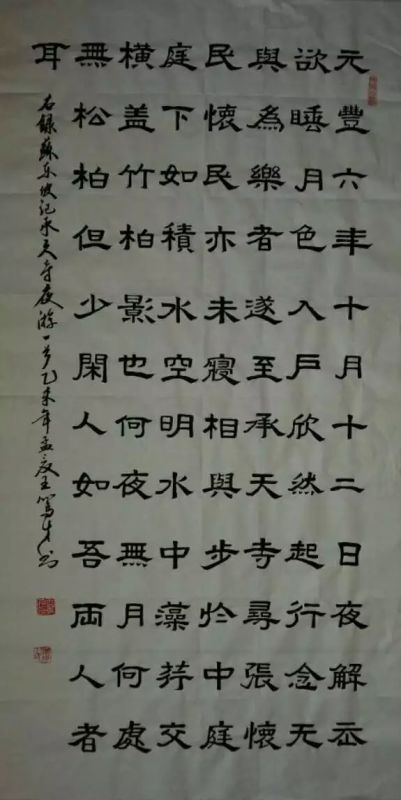 元豐六年十月十二日夜解衣
欲睡月色入戶欣然起行念无
與為樂者遂至承天寺尋張懷
民懷民亦未寢相與步扵中庭
庭下如積水空明水中藻荇交
橫盖竹柏影也何夜無月何處
無松柏但少閑人如吾兩人者
耳
右錄蘇东坡记承天寺夜游一首乙未年孟夏王